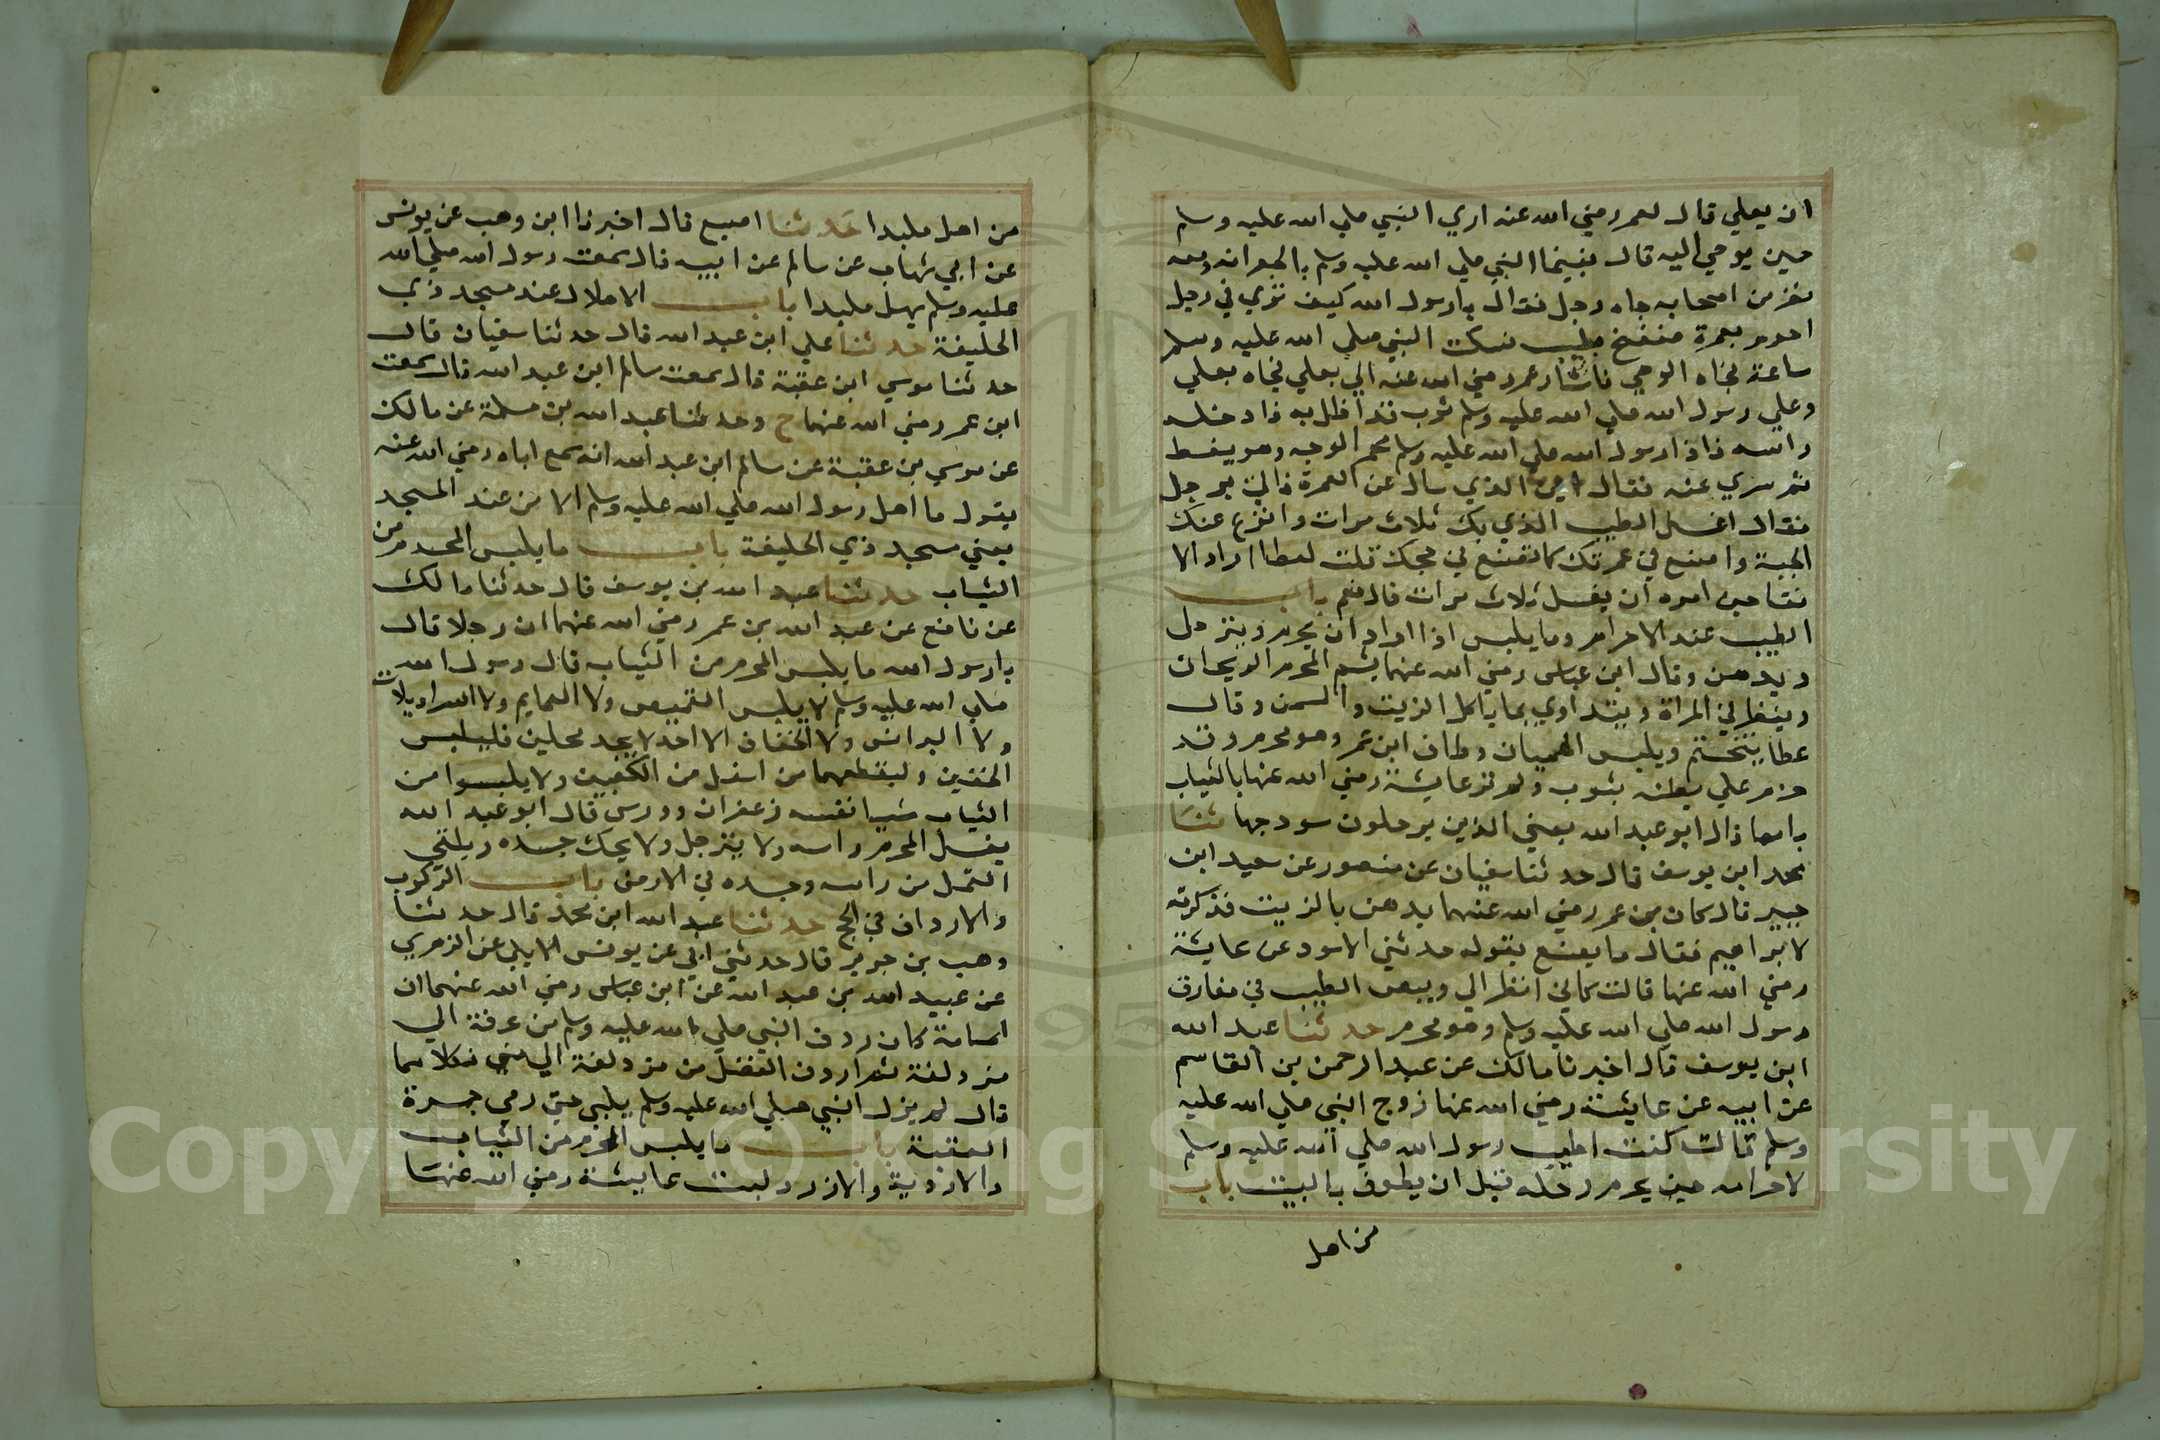 ان يعلي قال لعمر رضي الله عنه اري النبي صلي الله عليه وسلم
حين يوحي اليه قال فبينما النبي صلي الله عليه وسلم بالجعرانه ومعه
نفر من اصحابه جاه رجل فقال يا رسول الله كيف تري في رجل
احرم بعمرة متضمخ بطيب فسكت النبي صلي الله عليه وسلم
ساعة فجاه الوحي فاشار عمر رضي الله عنه الي يعلي فجاه يعلي
وعلي رسول الله صلي الله عليه وسلم ثوب قد اظل به فادخل
راسه فاذا رسول الله صلي الله عليه وسلم محمر الوجه وهو يغط
ثم سري عنه فقال اين الذي سال عن العمرة فاتي برجل
فقال اغسل الطيب الذي بك ثلاث مرات وانزع عنك
الجبة واصنع في عمرتك كما تصنع في حجك قلت لعطا اراد الا
نقا حين امره ان يغسل ثلاث مرات قال نعم باب
الطيب عند الاحرام وما يلبس اذا اراد ان يحرم ويترجل
ويدهن وقال ابن عباس رضي الله عنهما يشم المحرم الريحان
وينظر في المراة ويتداوي بما ياكل الزيت والسمن وقال
عطا يتختم ويلبس الهميان وطاف ابن عمر وهو محرم وقد
حزم علي بطنه بثوب ولم تر عايشة رضي الله عنها بالثياب
باسا قال ابو عبد الله يعني الذين يرحلون هودجها ثنا
محمد ابن يوسف قال حدثنا سفيان عن منصور عن سعيد ابن
جبير قال كان بن عمر رضي الله عنهما يدهن بالزيت فذكرته
لابراهيم فقال ما يصنع بقوله حدثني الاسود عن عايشة
رضي الله عنها قالت كاني انظر الي وبيص الطيب في مفارق
رسول الله صلي الله عليه وسلم وهو محرم حدثنا عبد الله
ابن يوسف قال اخبرنا مالك عن عبد الرحمن بن القاسم
عن ابيه عن عايشة رضي الله عنها زوج النبي صلي الله عليه
وسلم قالت كنت اطيب رسول الله صلي الله عليه وسلم
لاحرامه حين يحرم ولحله قبل ان يطوف بالبيت باب
من اهل
من اهل ملبدا حدثنا اصبع قال اخبرنا ابن وهب عن يونس
عن ابي شهاب عن سالم عن ابيه قال سمعت رسول الله صلي الله
عليه وسلم يهل ملبدا باب الاهلال عند مسجد ذي
الحليفة حدثنا علي ابن عبد الله قال حدثنا سفيان قال
حدثنا موسي ابن عقبة قال سمعت سالم ابن عبد الله قال سمعت
ابن عمر رضي الله عنهما ح وحدثنا عبد الله بن مسلمة عن مالك
عن موسي بن عقبة عن سالم ابن عبد الله انه سمع اباه رضي الله عنه
يقول ما اهل رسول الله صلي الله عليه وسلم الا من عند المسجد
يعني مسجد ذي الحليفة باب ما يلبس المحرم من
الثياب حدثنا عبد الله بن يوسف قال حدثنا مالك
عن نافع عن عبد الله بن عمر رضي الله عنهما ان رجلا قال
يا رسول الله ما يلبس المحرم من الثياب قال رسول الله
صلي الله عليه وسلم لا يلبس القميص ولا العمايم ولا السراويلات
ولا البرانس ولا الخفاف الا احد لا يجد نعلين فليلبس
الخفين وليقطعهما من اسفل من الكعبين ولا يلبسوا من
الثياب شيا مسه زعفران وورس قال ابو عبد الله
يغسل المحرم راسه ولا يترجل ولا يحك جسده ويلقي
القمل من راسه وجسده في الارض باب الركوب
والارداف في الحج حدثنا عبد الله ابن محمد قال حدثنا
وهب بن جرير قال حدثني ابي عن يونس الايلي عن الزهري
عن عبيد الله بن عبد الله عن ابن عباس رضي الله عنهما ان
اسامة كان ردف النبي صلي الله عليه وسلم من عرفة الي
مزدلفة ثم اردف الفضل من مزدلفة الي مني فكلاهما
قال لم يزل النبي صلي الله عليه وسلم يلبي حتي رمي جمرة
العقبة باب ما يلبس المحرم من الثياب
والاردية والازر ولبست عايشة رضي الله عنها
Copyright © King Saud University